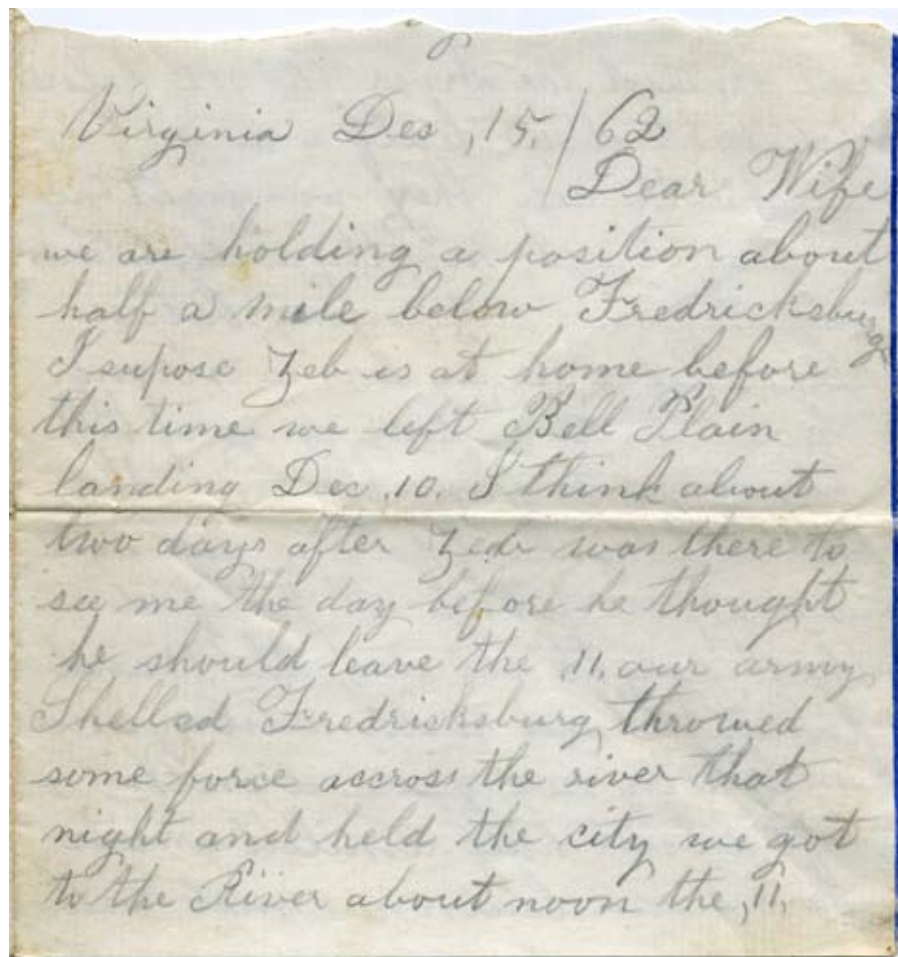 Virginia Des ,15. / 62
Dear Wife
we are holding a position about
half a mile below Fredricksburg
I supose Zeb is at home before
this time we left Bell Plain
landing Dec .10. I think about
two days after Zeb was there to
see me the day before he thought
he should leave the .11. our army
Shelled Fredricksburg throwed
some force accross the river that
night and held the city we got
to the River about noon the ,11,